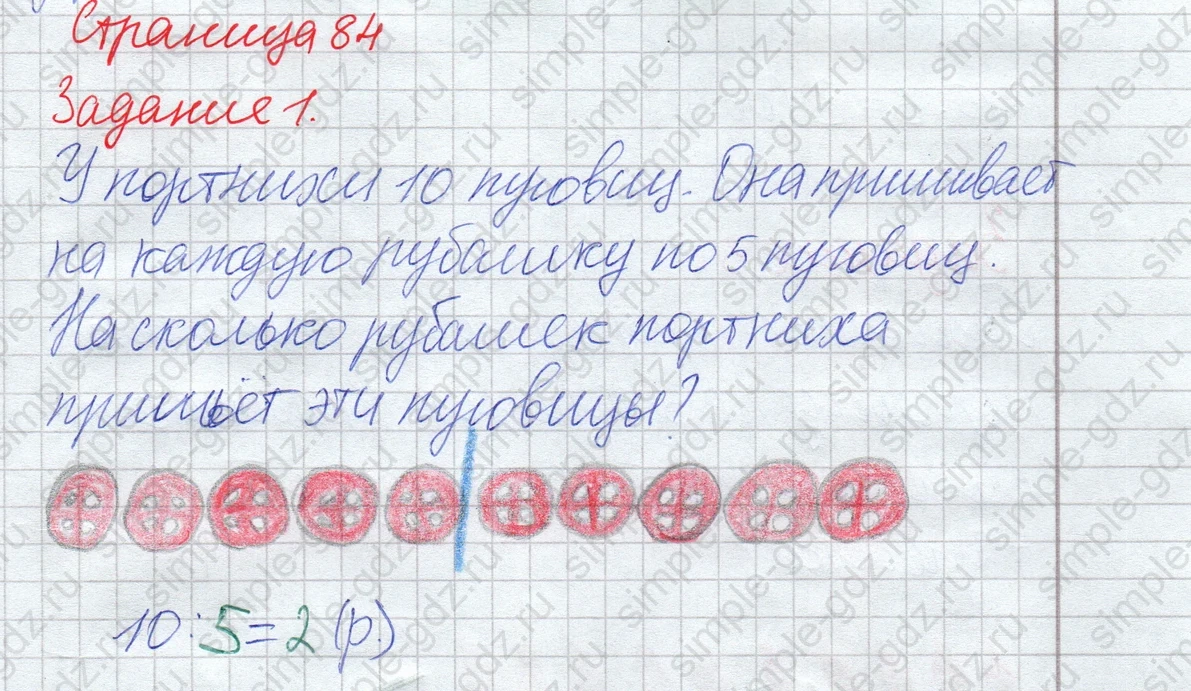 Страница 84
Задание 1.
У портнихи 10 пуговиц. Она пришивает
на каждую рубашку по 5 пуговиц.
На сколько рубашек портниха
пришьёт эти пуговицы?
10:5=2 (р.)
simple-gdz.ru